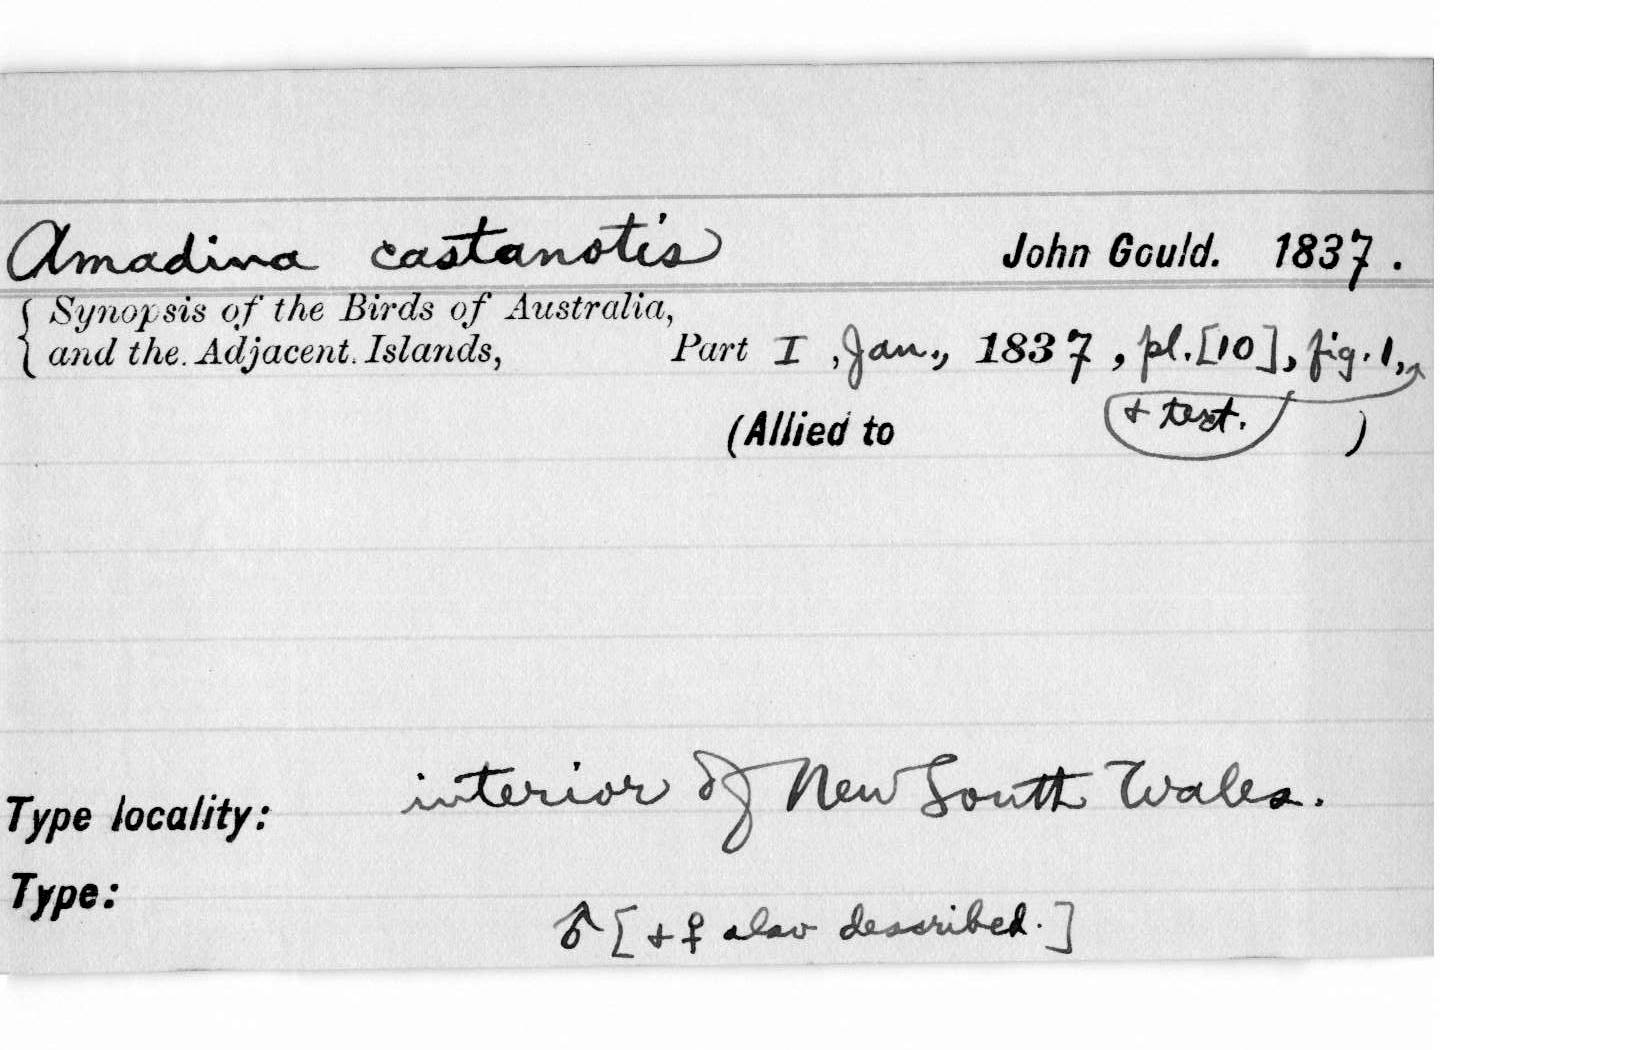 Amadina castanotis John Gould. 1837.
{ Synopsis of the Birds of Australia,
and the Adjacent Islands, Part I, Jan., 1837, pl. [10], fig. 1,
(Allied to + text. )
Type locality: interior of New South Wales.
Type:
♂ [+ ♀ also described.]